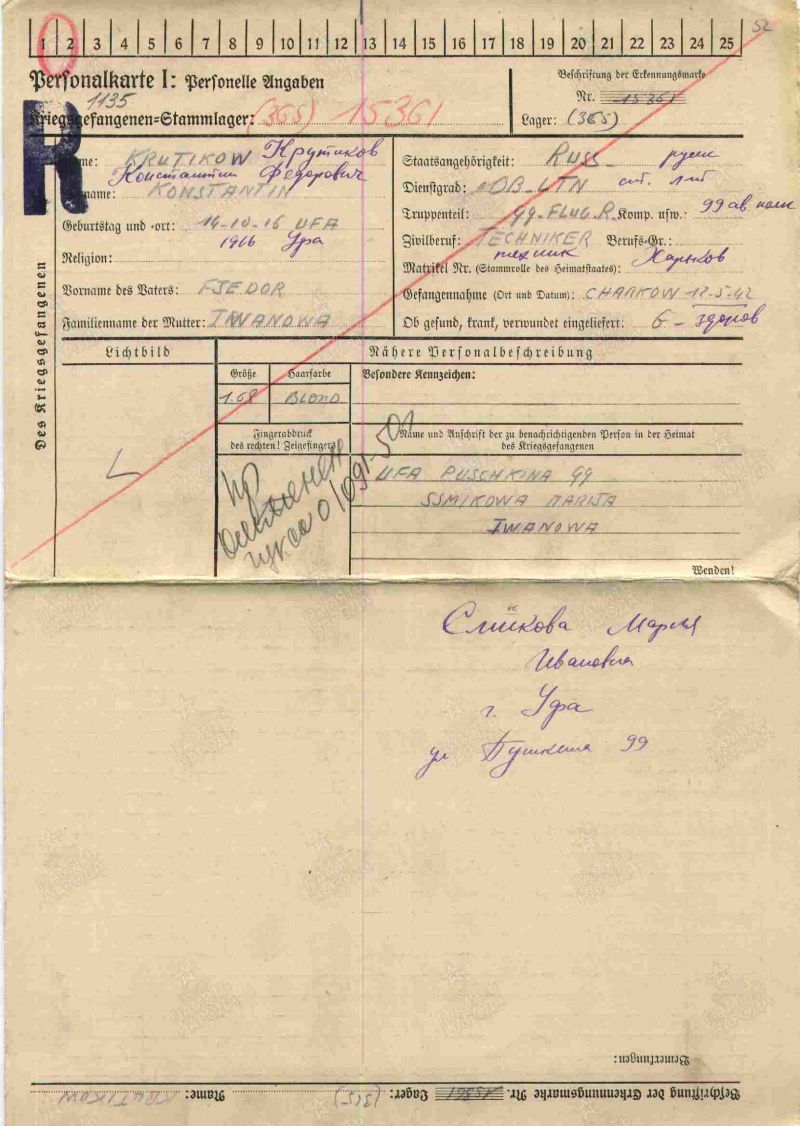 1 2 3 4 5 6 7 8 9 10 11 12 13 14 15 16 17 18 19 20 21 22 23 24 25
52
Personalkarte I: Personelle Angaben
Beschriftung der Erkennungsmarke
1135
Nr. 15361
Kriegsgefangenen=Stammlager: (365) 15361
Lager: (365)
R
Des Kriegsgefangenen
Name: KRUTIKOW Крутиков
Константин Федорович
Vorname: KONSTANTIN
Geburtstag und -ort: 14-10-16 UFA
1916 Уфа
Religion:
Vorname des Vaters: FJEDOR
Familienname der Mutter: IWANOWA
Staatsangehörigkeit: RUSS
Dienstgrad: OB-LTN ст. лт
Truppenteil: 99-FLUG.R. Komp. usw.: 99 ав. полк
Zivilberuf: TECHNIKER Berufs-Gr.:
техник Харьков
Matrikel Nr. (Stammrolle des Heimatstaates):
Gefangennahme (Ort und Datum): CHARKOW 12-5-42
Ob gesund, krank, verwundet eingeliefert: G - здоров
Lichtbild
Nähere Personalbeschreibung
Größe Haarfarbe Besondere Kennzeichen:
1.68 BLOND
Fingerabdruck
des rechten! Zeigefingers
Name und Anschrift der zu benachrichtigenden Person in der Heimat
des Kriegsgefangenen
UFA PUSCHKINA 99
SSMIKOWA MARIJA
IWANOWA
Wenden!
Мария
Ивановна
г. Уфа
ул Пушкина 99
Bemerkungen:
Beschriftung der Erkennungsmarke Nr. 15361 Lager: (365) Name: KRUTIKOW